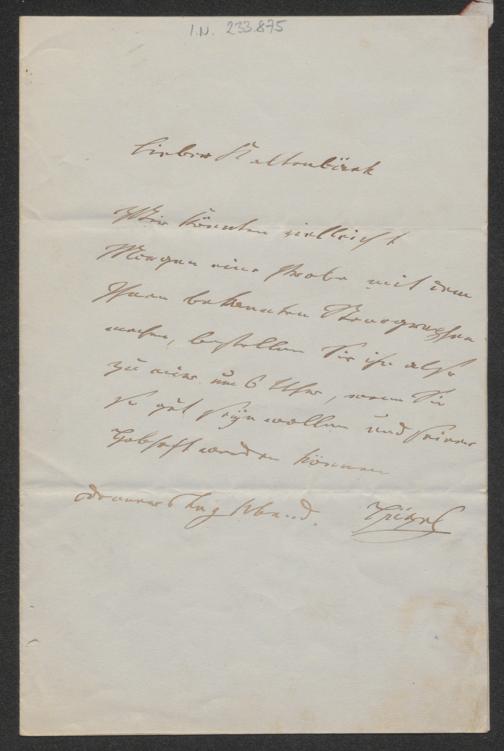 I.N. 233.875
Lieber Kaltenbäck
Wir könnten vielleicht
Morgen eine Probe mit dem
Ihnen bekannten Stenographen
machen, bestellen Sie ihn also
zu mir um 6 Uhr, wenn Sie
so gut seyn wollen und seiner
habhaft werden können
Donners Tag Abend.